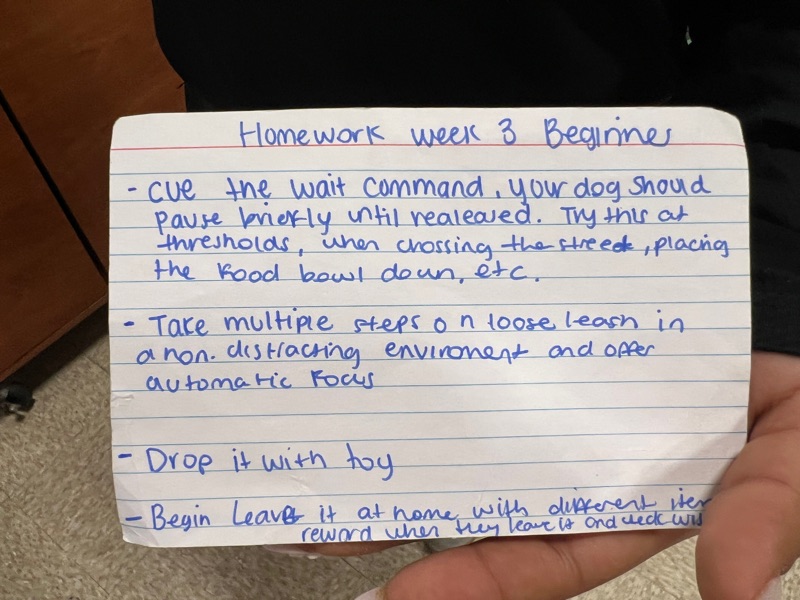 Homework week 3 Beginner
- Cue the wait command, your dog shoud
pause briefly until realeased. Try this at
thresholds, when crossing the street, placing
the food bowl down, etc.
- Take multiple steps on loose leash in
a non. distracting enviroment and offer
automatic focus
- Drop it with toy
- Begin Leave it at home with different
reward when they leave it and